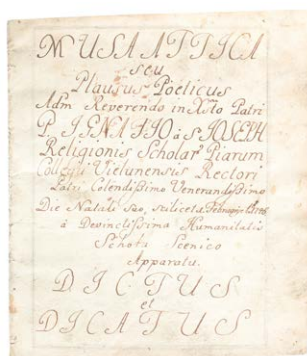 MUSA ATTICA
seu
Plausus Poeticus
Adm Reverendo in Xsto Patri
P. IGNATIO à S. JOSEPH
Religionis Scholar Piarum
Collegii Vielunensis Rectori
Patri Colendissimo Venerandissimo
Die Natali Suo, scilicet
à Devinctissima Humanitatis
Schola Scenico
Apparatu.
DICTUS
et
DICATUS